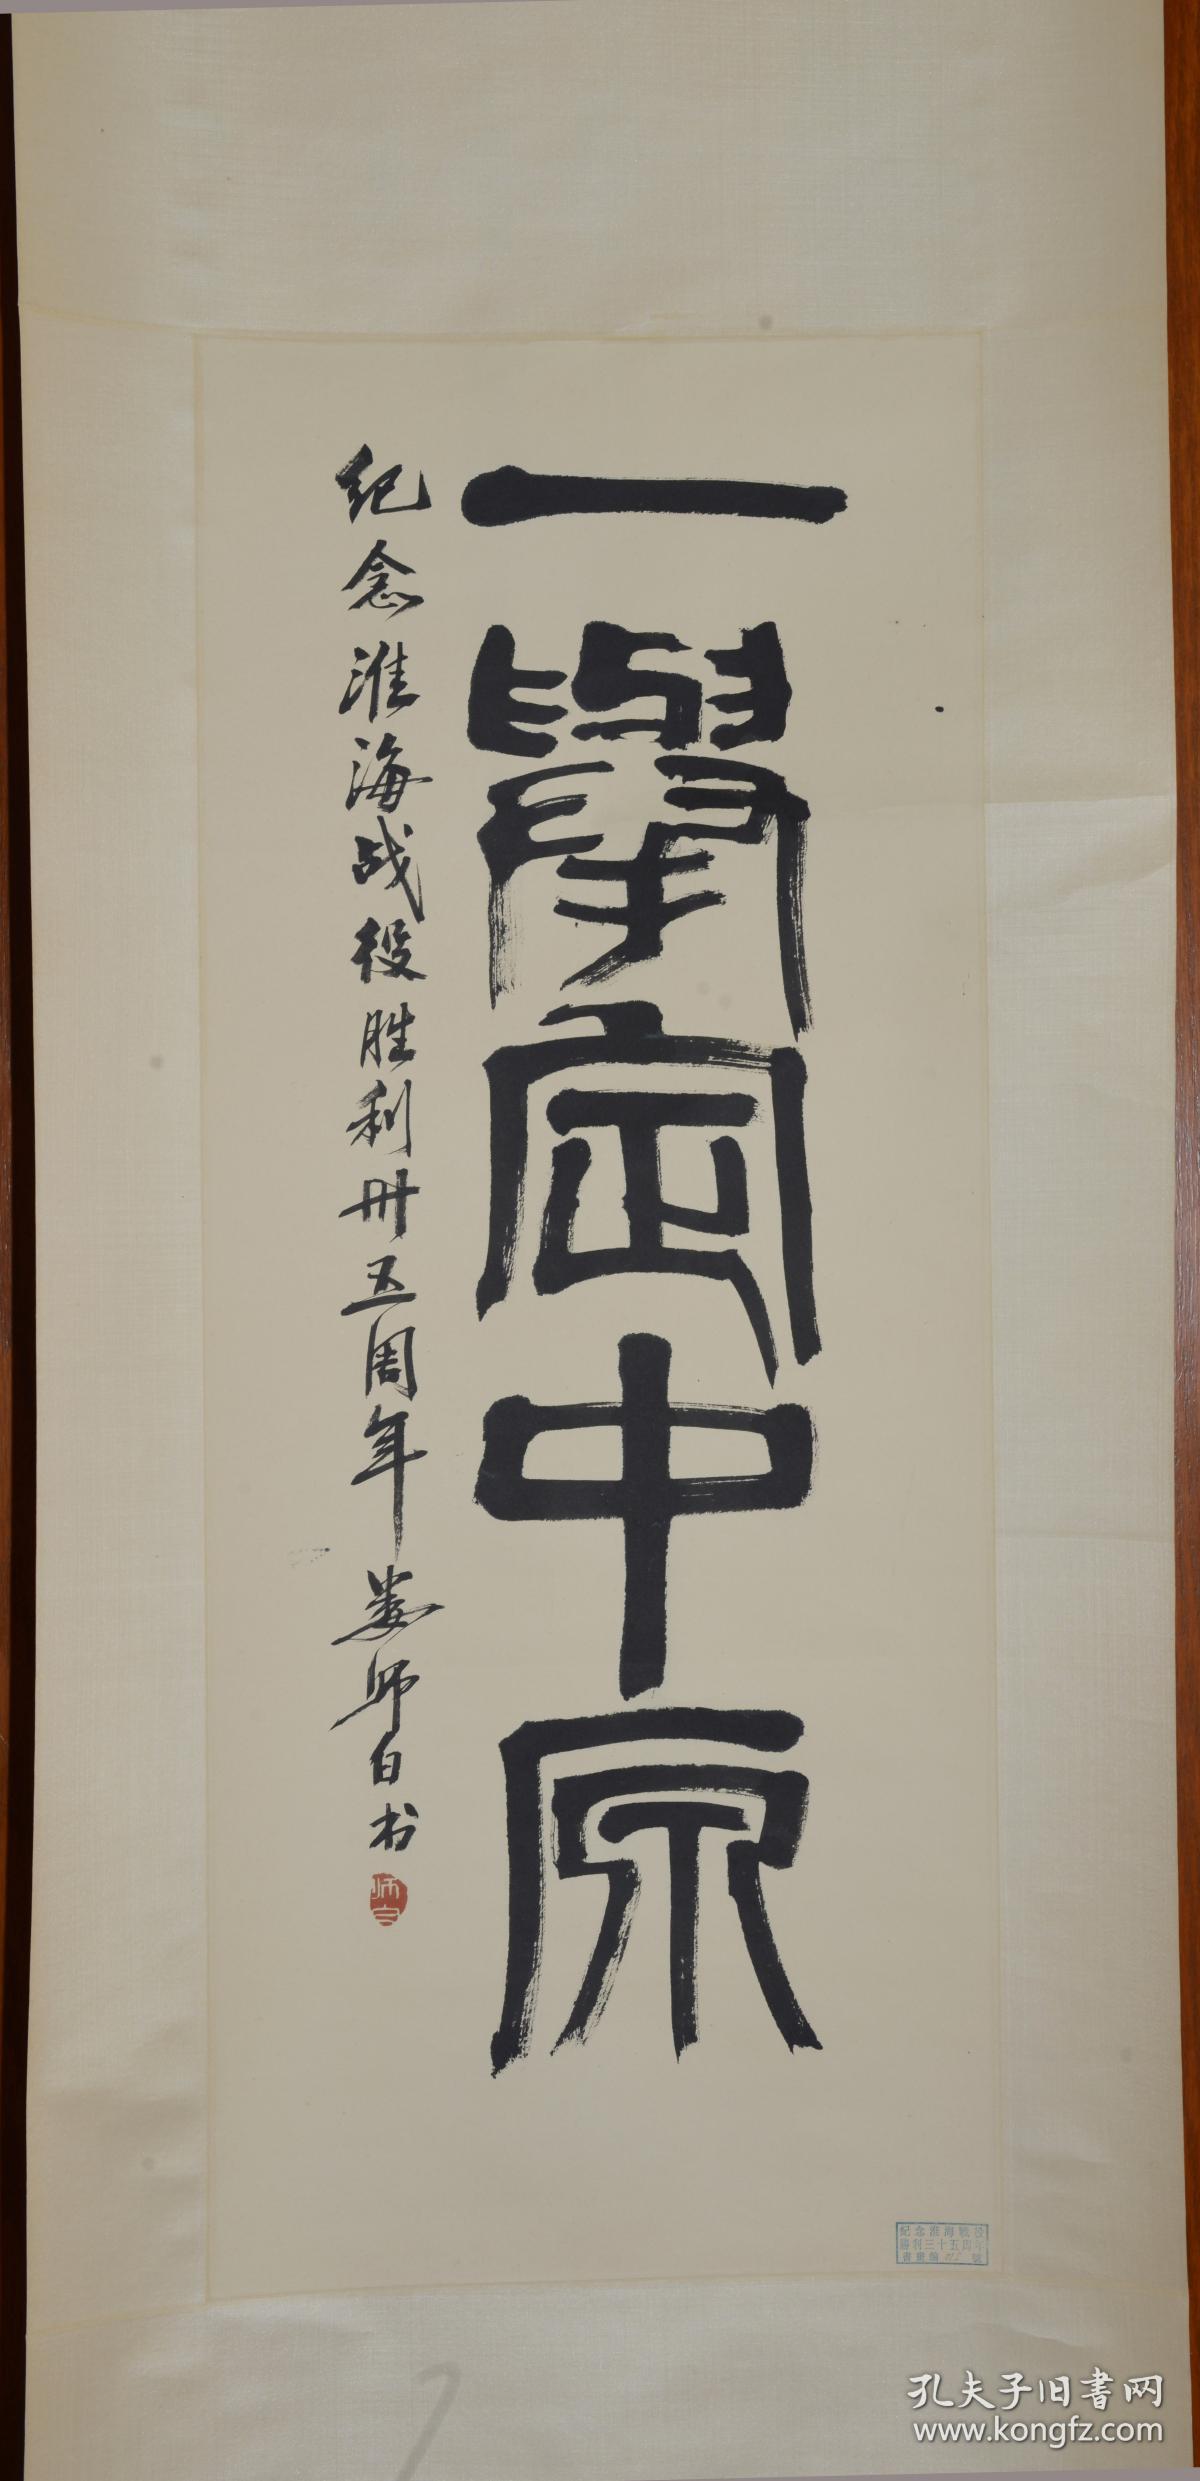 一舉定中原
纪念淮海战役胜利卅五周年 娄师白书
师白
紀念淮海戰役
勝利三十五周年
孔夫子旧書网
www.kongfz.com